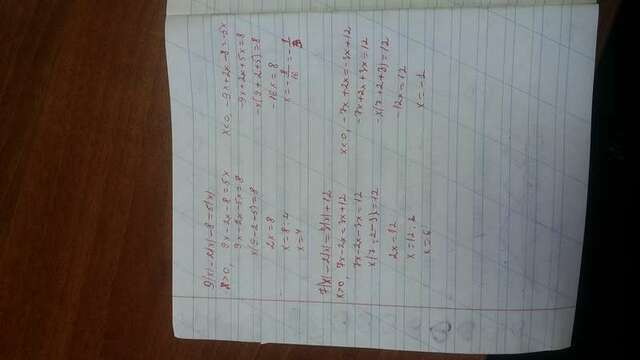 9|x|-2|x|-8=5|x|
x>0, 9x-2x-8=5x
9x-2x-5x=8
x(9-2-5)=8
2x=8
x=8:2
x=4
x<0, -9x+2x-8=-5x
-9x+2x+5x=8
-x(9+2+5)=8
-16x=8
7|x|-2|x|=3|x|+12
x>0, 7x-2x=3x+12
7x-2x-3x=12
x(7-2-3)=12
2x=12
x=12:2
x=6
x<0, -7x+2x=-3x+12
-7x+2x+3x=12
-x(7+2+3)=12
-12x=12
x=-1